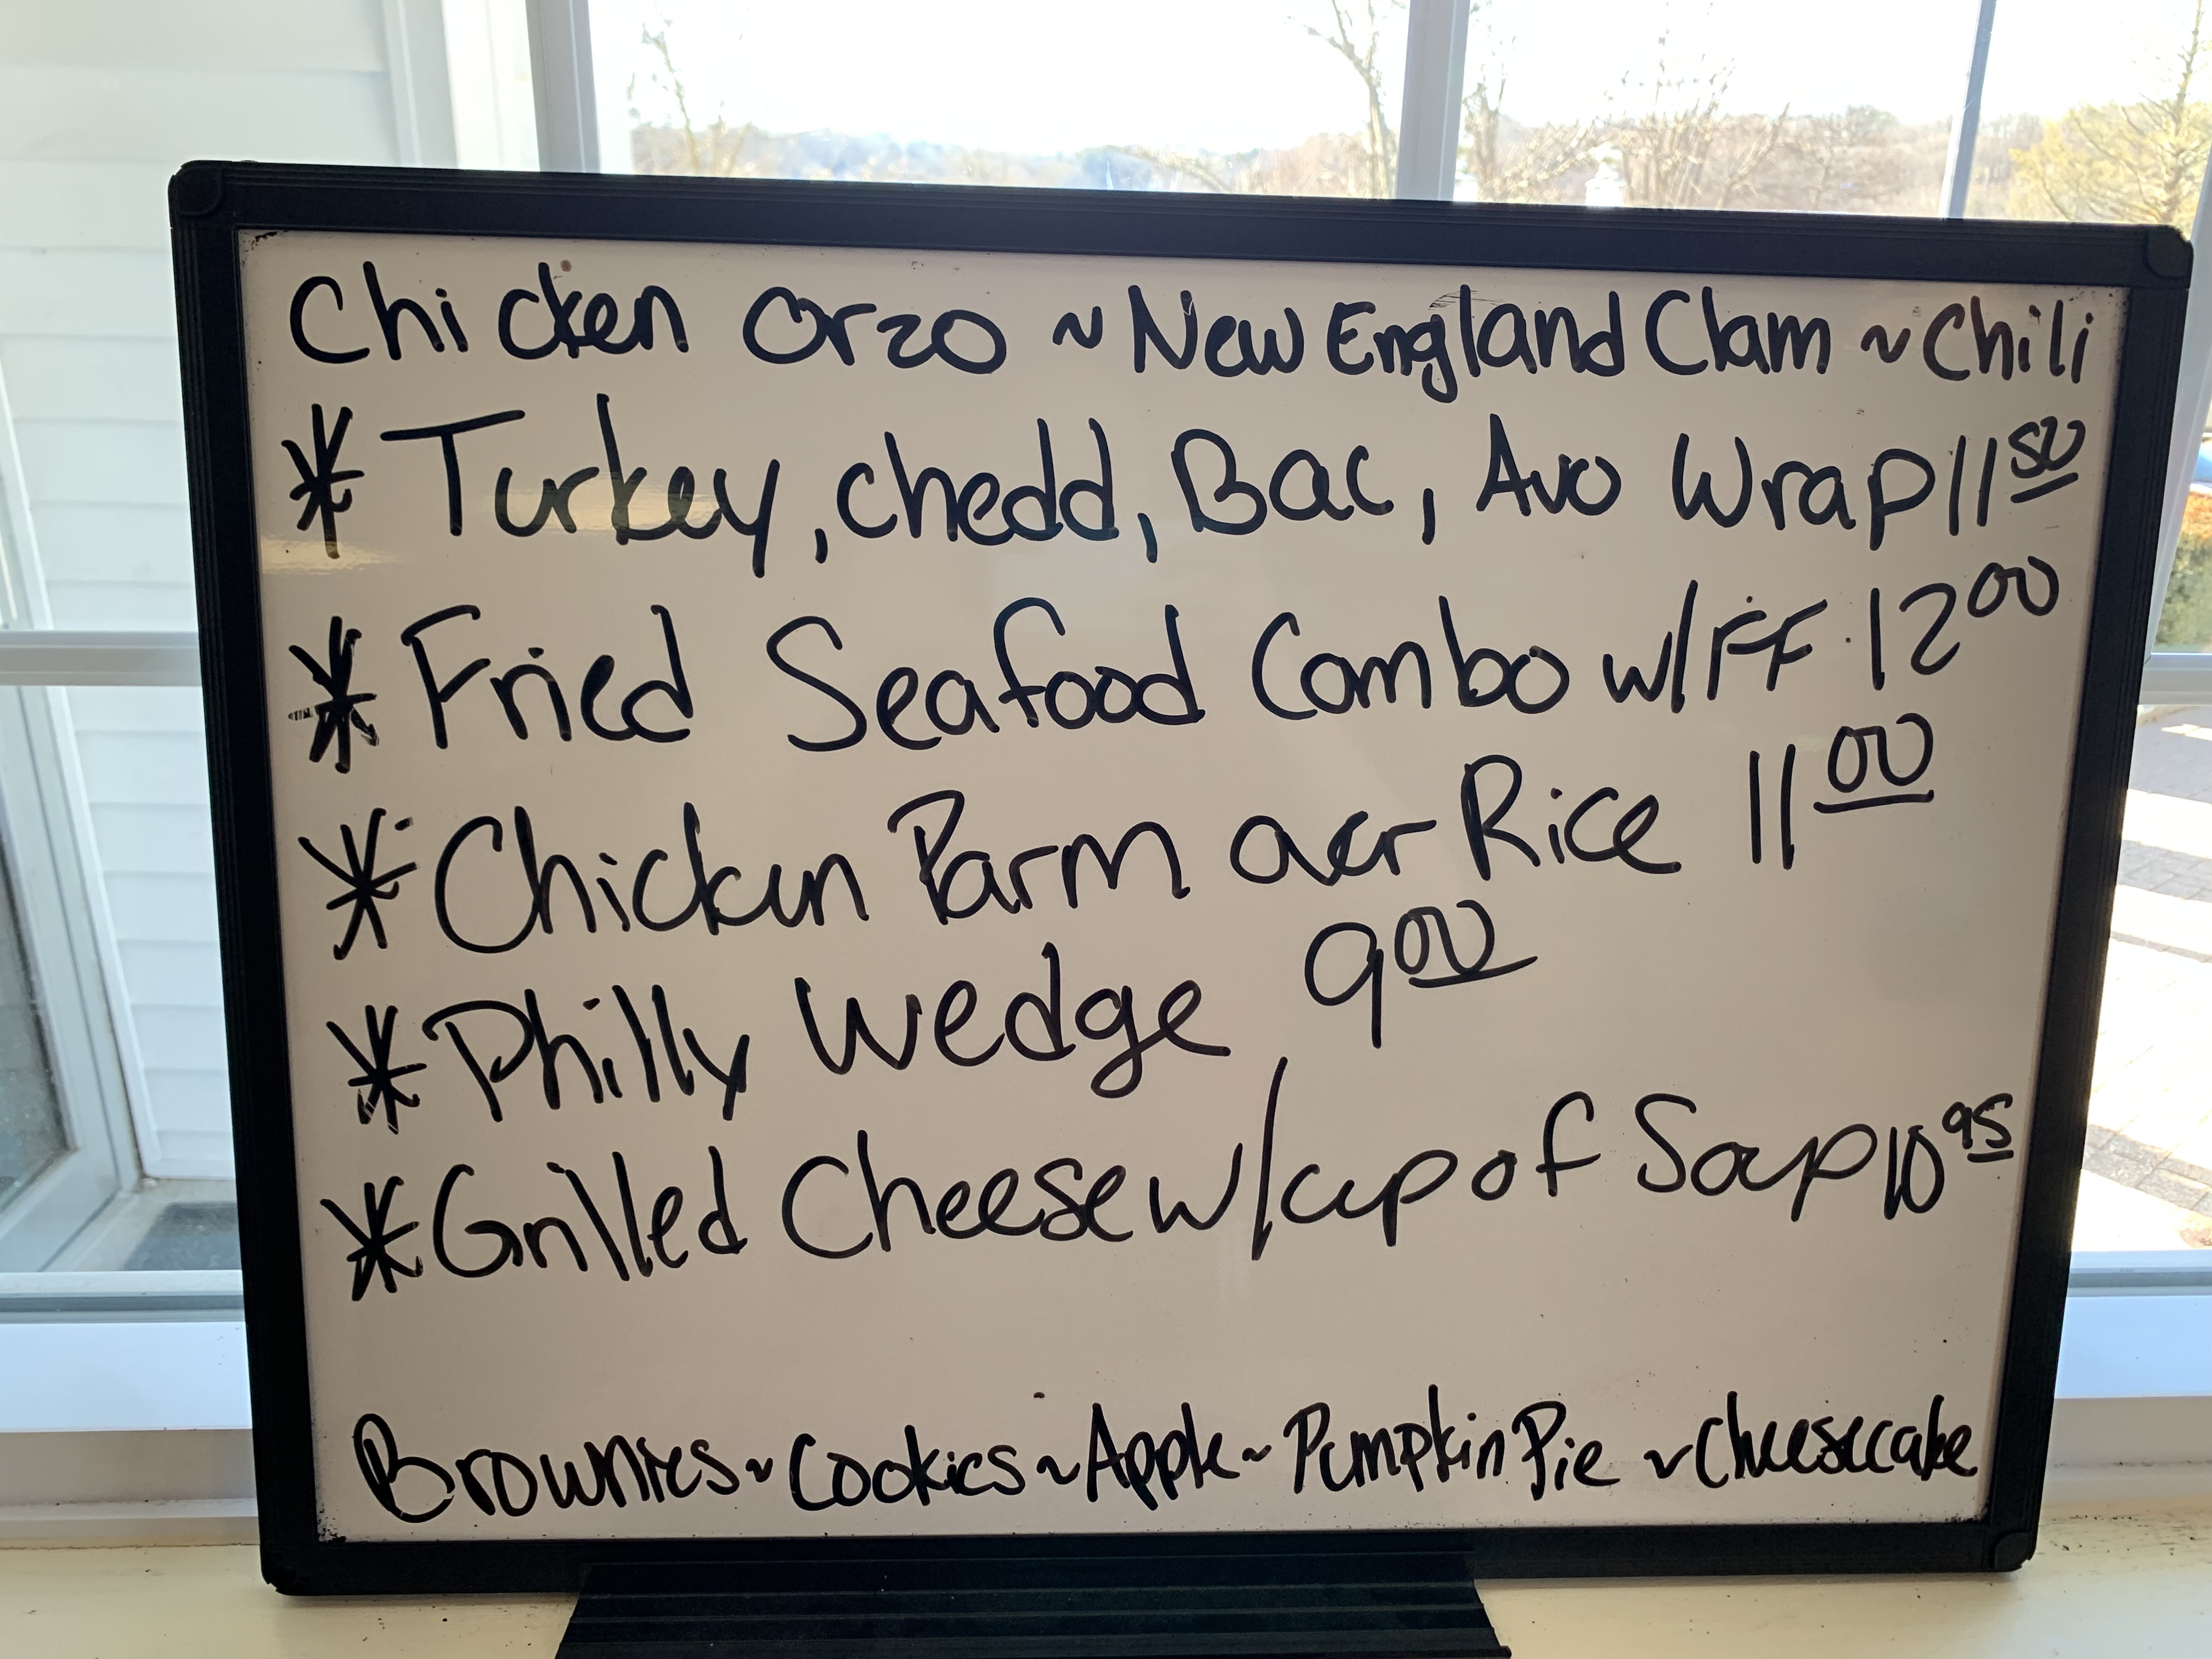 Chicken Orzo ~ New England Clam ~ Chili
* Turkey, chedd, Bac, Avo Wrap 11 50
* Fried Seafood Combo w/FF 12 00
* Chicken Parm over Rice 11 00
* Philly Wedge 9 00
* Grilled Cheese w/cup of Soup 10 95
Brownies ~ Cookies ~ Apple ~ Pumpkin Pie ~ Cheesecake